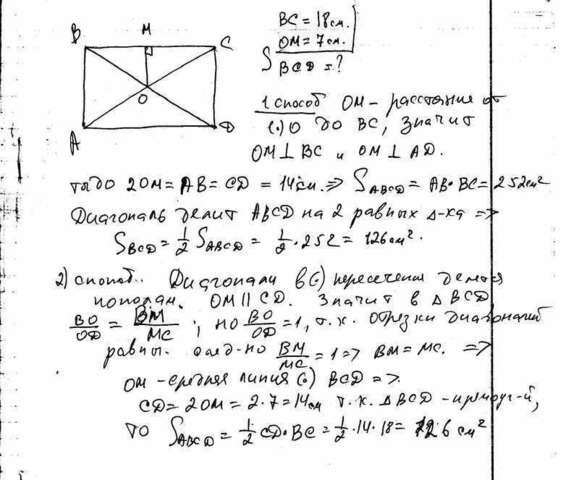 B M C
BC = 18 см.
OM = 7 см.
S BCD = ?
O
A D
1 способ OM – расстояние от
(·) O до BC, значит
OM ⊥ BC и OM ⊥ AD.
тогда 2OM = AB = CD = 14 см. => S ABCD = AB · BC = 252 см²
Диагональ делит ABCD на 2 равных Δ-ка =>
S BCD = 1/2 S ABCD = 1/2 · 252 = 126 см².
2) способ. Диагонали в (·) пересечения делятся
пополам. OM || CD. Значит в Δ BCD
BO/OD = BM/MC ; но BO/OD = 1, т.к. отрезки диагоналей
равны. след-но BM/MC = 1 => BM = MC. =>
OM – средняя линия (·) BCD =>
CD = 2OM = 2 · 7 = 14 см т.к. Δ BCD – прямоуг-й,
то S ABCD = 1/2 CD · BC = 1/2 · 14 · 18 = 126 см²